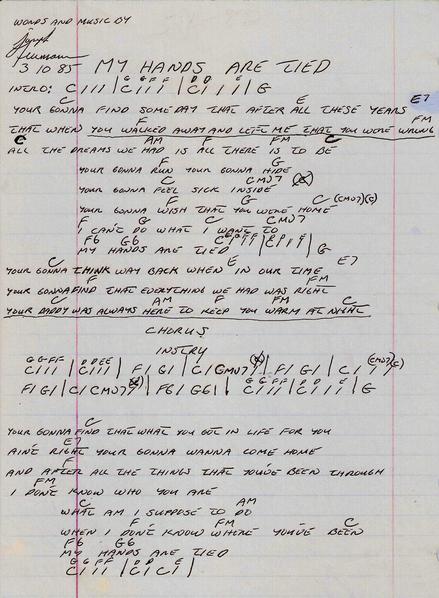 WORDS AND MUSIC BY
Joseph
3 10 85 MY HANDS ARE TIED
G G F F D D E
INTRO: C / / / | C / / / | C / / / / | G
C E E7
YOUR GONNA FIND SOMEDAY THAT AFTER ALL THESE YEARS
F FM
THAT WHEN YOU WALKED AWAY AND LEFT ME THAT YOU WERE WRONG
C AM F FM C
ALL THE DREAMS WE HAD IS ALL THERE IS TO BE
F G
YOUR GONNA RUN YOUR GONNA HIDE
C CMJ7
YOUR GONNA FEEL SICK INSIDE
F G C (CMJ7)(C)
YOUR GONNA WISH THAT YOU WERE HOME
F G C CMJ7
I CAN'T DO WHAT I WANT TO
F6 G6
MY HANDS ARE TIED | G
C E E7
YOUR GONNA THINK WAY BACK WHEN IN OUR TIME
F FM
YOUR GONNA FIND THAT EVERYTHING WE HAD WAS RIGHT
C AM F FM C
YOUR DADDY WAS ALWAYS HERE TO KEEP YOU WARM AT NIGHT
CHORUS
INSTRU
G G F F D D E E (CMJ7)(C)
C / / / | C / / / | F / G / | C / CMJ7 / | F / G / | C / / /
F / G / | C / CMJ7 | F6 / G6 / | C / / / | C / / / / | G
C
YOUR GONNA FIND THAT WHAT YOU GOT IN LIFE FOR YOU
E7
AIN'T RIGHT YOUR GONNA WANNA COME HOME
F
AND AFTER ALL THE THINGS THAT YOU'VE BEEN THROUGH
FM
I DON'T KNOW WHO YOU ARE
C AM
WHAT AM I SUPPOSE TO DO
F FM C
WHEN I DON'T KNOW WHERE YOU'VE BEEN
F6 G6
MY HANDS ARE TIED
G G F F D D E
C / / / | C / C / |